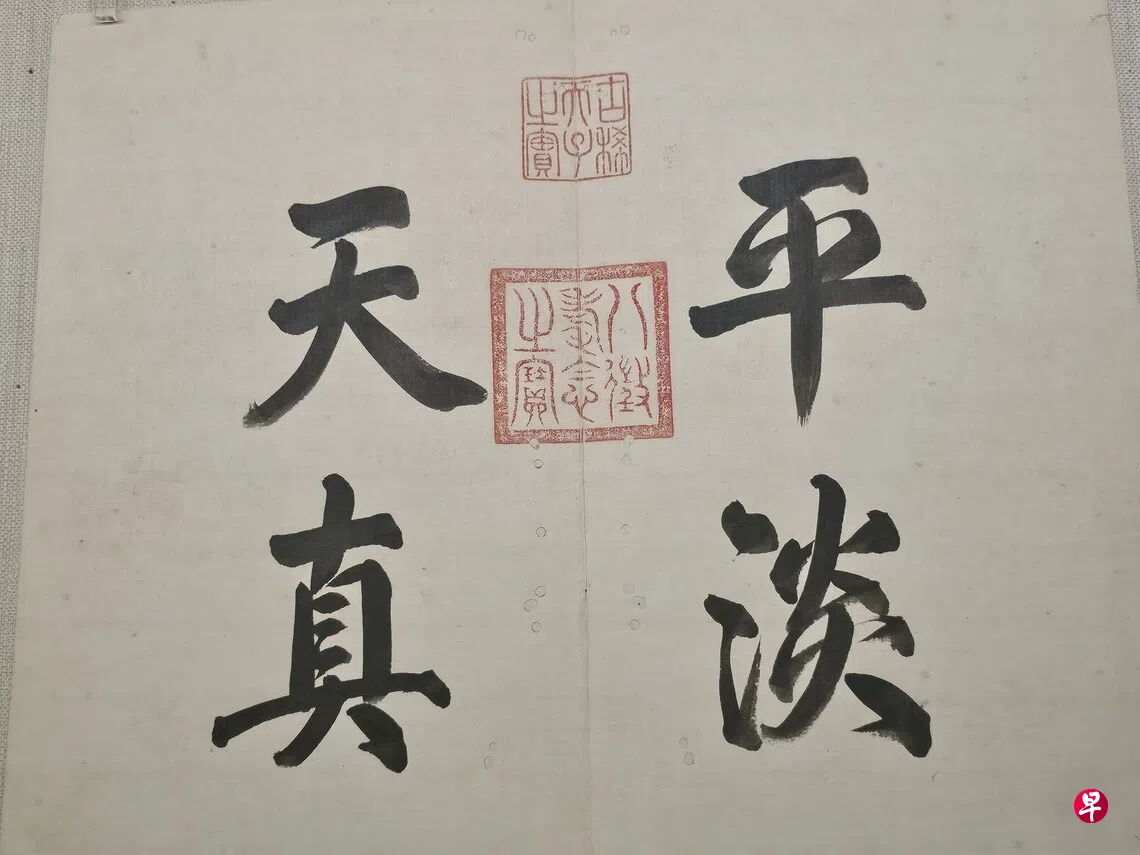 平淡
天真
古稀天子之寶
八徵耄念之寶
早